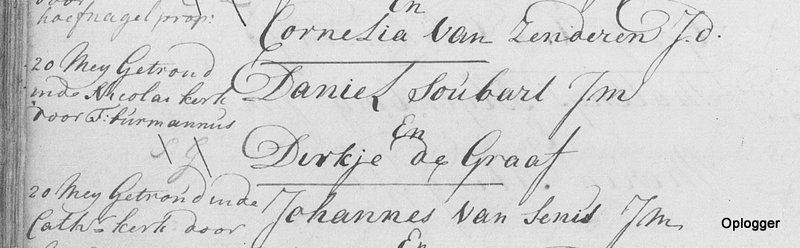 hoefnagel prop:
En
Cornelia van Zenderen J.d.
20 Mey Getrond
inde Nicolai kerk
door S: burmannus
Daniel Soubart Jm
En
Dirkje de Graaf
20 Mey Getrond inde
Cath: kerk door
Johannes van Senis Jm
En
Oplogger